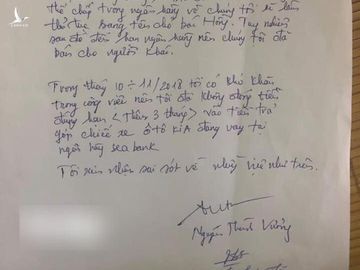 thế chấp trong ngân hàng về chúng tôi sẽ làm
thủ tục sang tên cho bà Hồng. Tuy nhiên
sau đó đến hạn ngân hàng nên chúng tôi đã
bán cho người khác.
Trong tháng 10 ÷ 11/2018 tôi có khó khăn
trong công việc nên tôi đã không đóng tiền
đúng hạn 2 tháng 3 tháng vào tiền trả
góp chiếc xe ô tô KIA đang vay tại
ngân hàng sea bank
Tôi xin nhận sai sót về những việc như trên.
Nguyễn Thành Vương